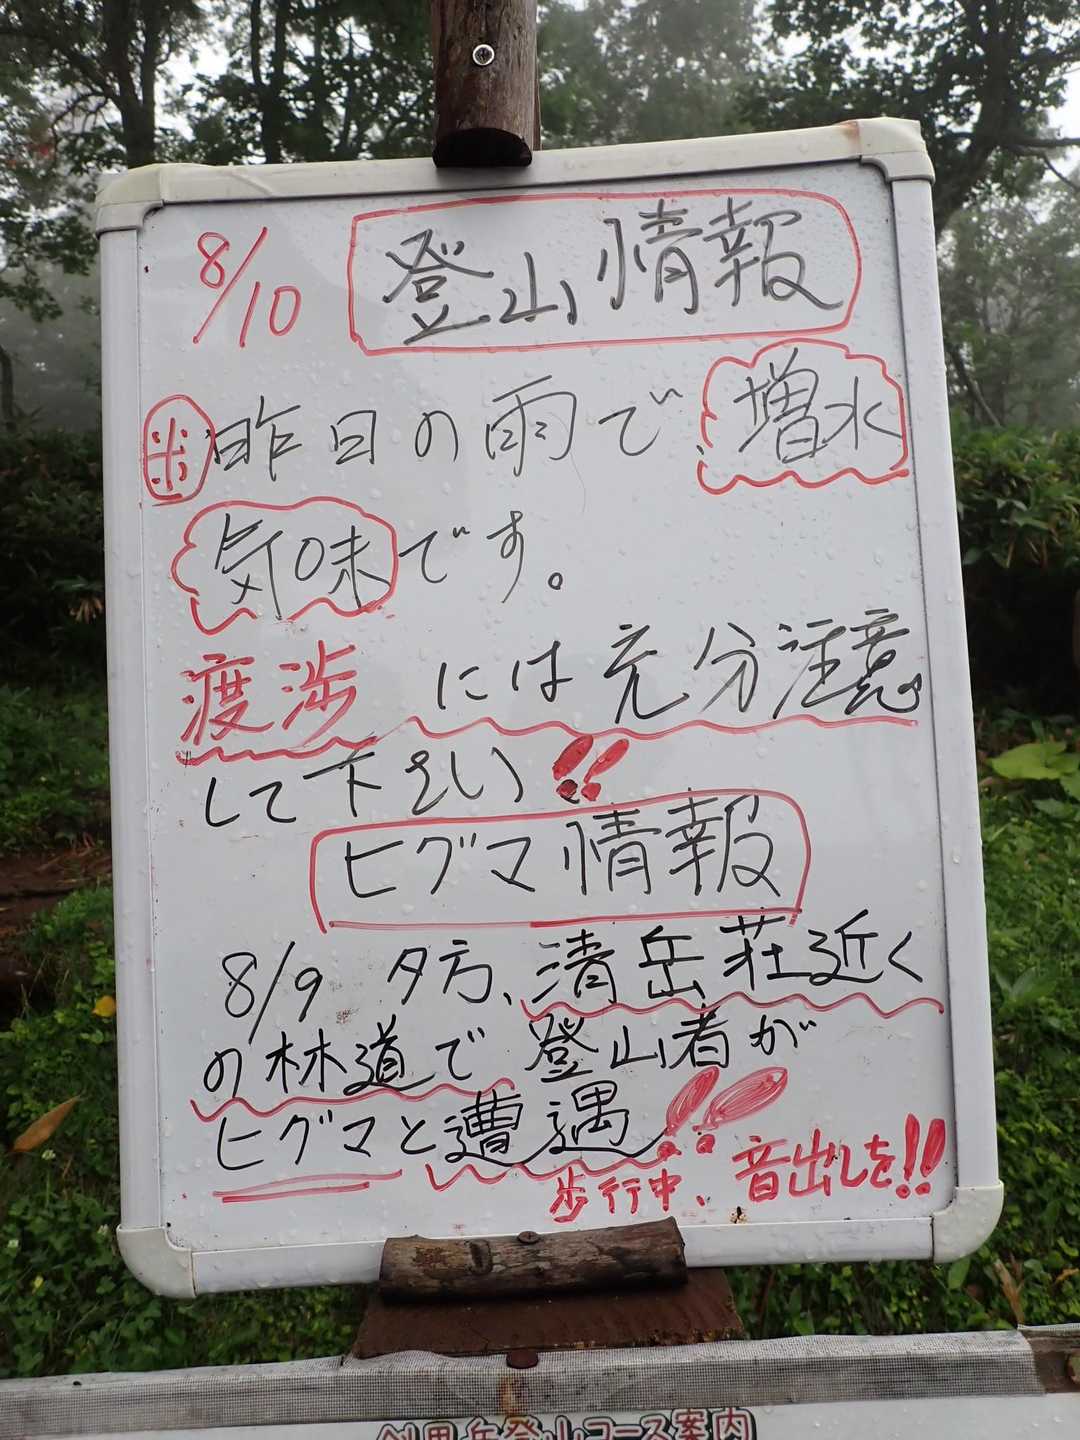 8/10 登山情報
※昨日の雨で増水
気味です。
渡渉には充分注意
して下さい!!
ヒグマ情報
8/9 夕方、清岳荘近く
の林道で登山者が
ヒグマと遭遇!!
歩行中、音出しを!!
斜里岳登山コース案内